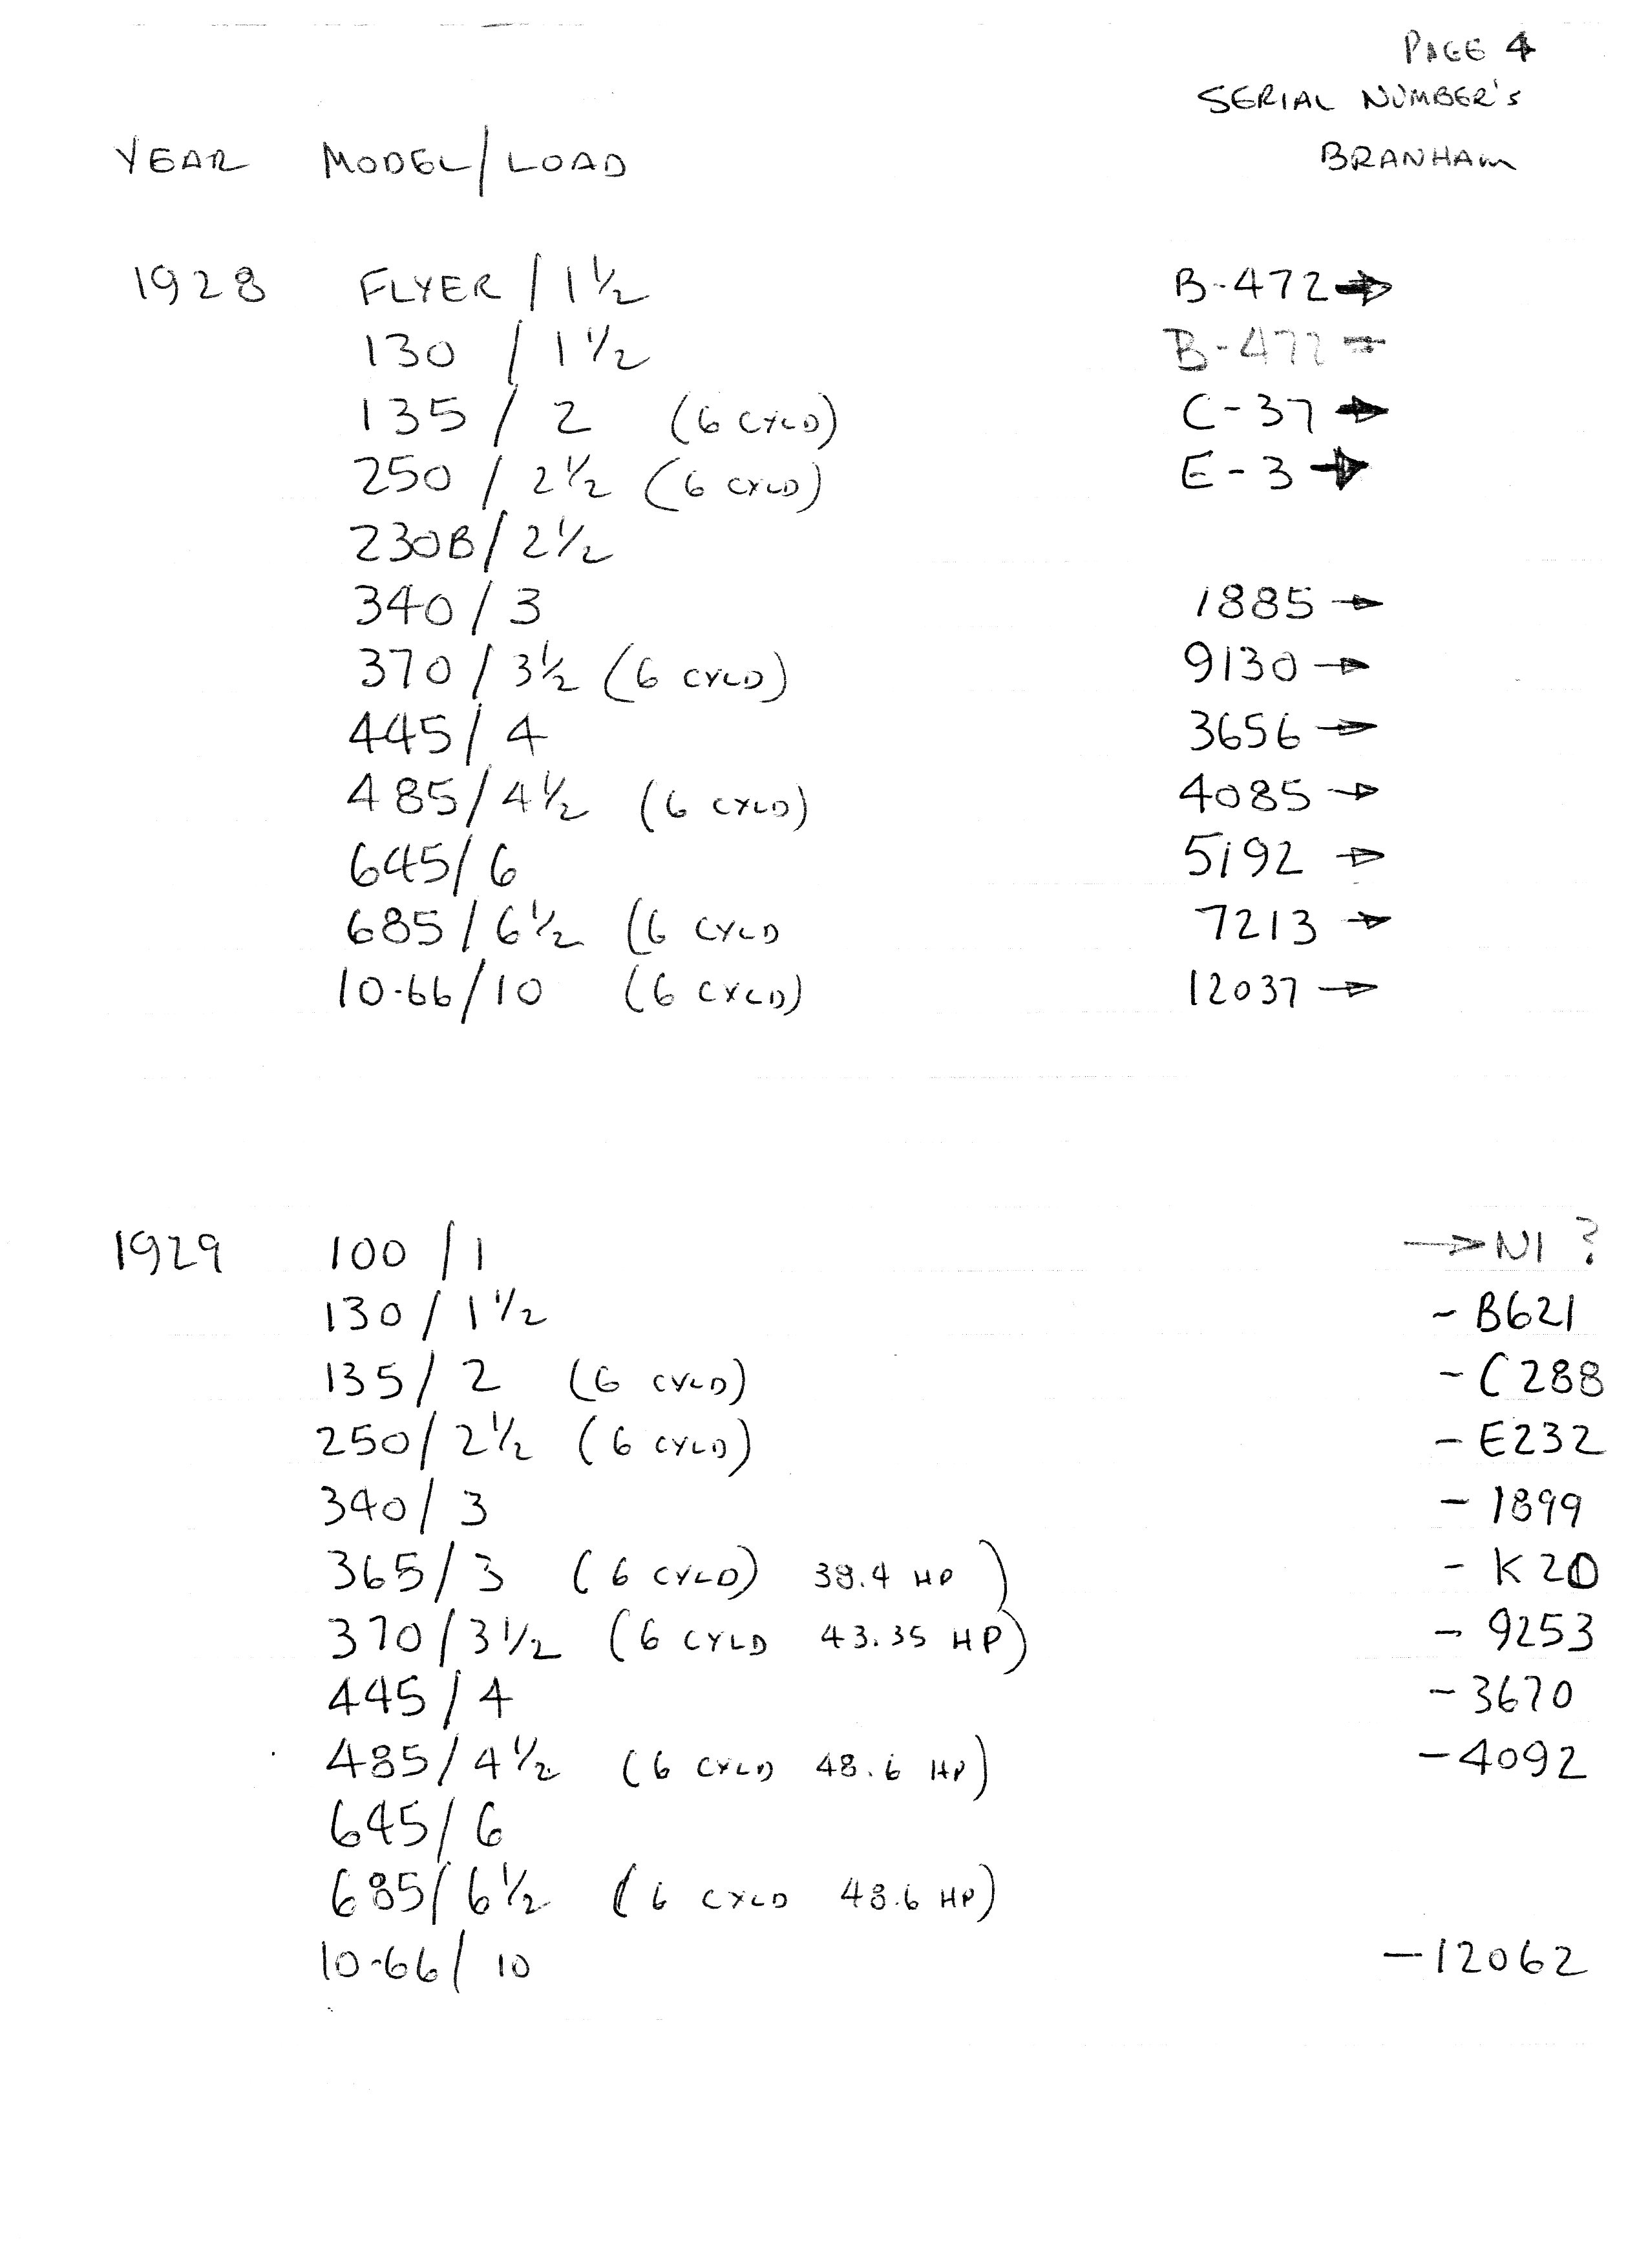 PAGE 4
SERIAL NUMBER'S
YEAR MODEL/LOAD BRANHAM
1928 FLYER / 1 1/2 B-472→
130 / 1 1/2 B-472→
135 / 2 (6 CYLD) C-37→
250 / 2 1/2 (6 CYLD) E-3→
230B / 2 1/2
340 / 3 1885→
370 / 3 1/2 (6 CYLD) 9130→
445 / 4 3656→
485 / 4 1/2 (6 CYLD) 4085→
645 / 6 5192→
685 / 6 1/2 (6 CYLD 7213→
10-66 / 10 (6 CYLD) 12037→
1929 100 / 1 →N1 ?
130 / 1 1/2 - B621
135 / 2 (6 CYLD) - C288
250 / 2 1/2 (6 CYLD) - E232
340 / 3 - 1899
365 / 3 (6 CYLD) 38.4 HP) - K20
370 / 3 1/2 (6 CYLD 43.35 HP) - 9253
445 / 4 - 3670
485 / 4 1/2 (6 CYLD 48.6 HP) - 4092
645 / 6
685 / 6 1/2 (6 CYLD 48.6 HP)
10-66 / 10 - 12062